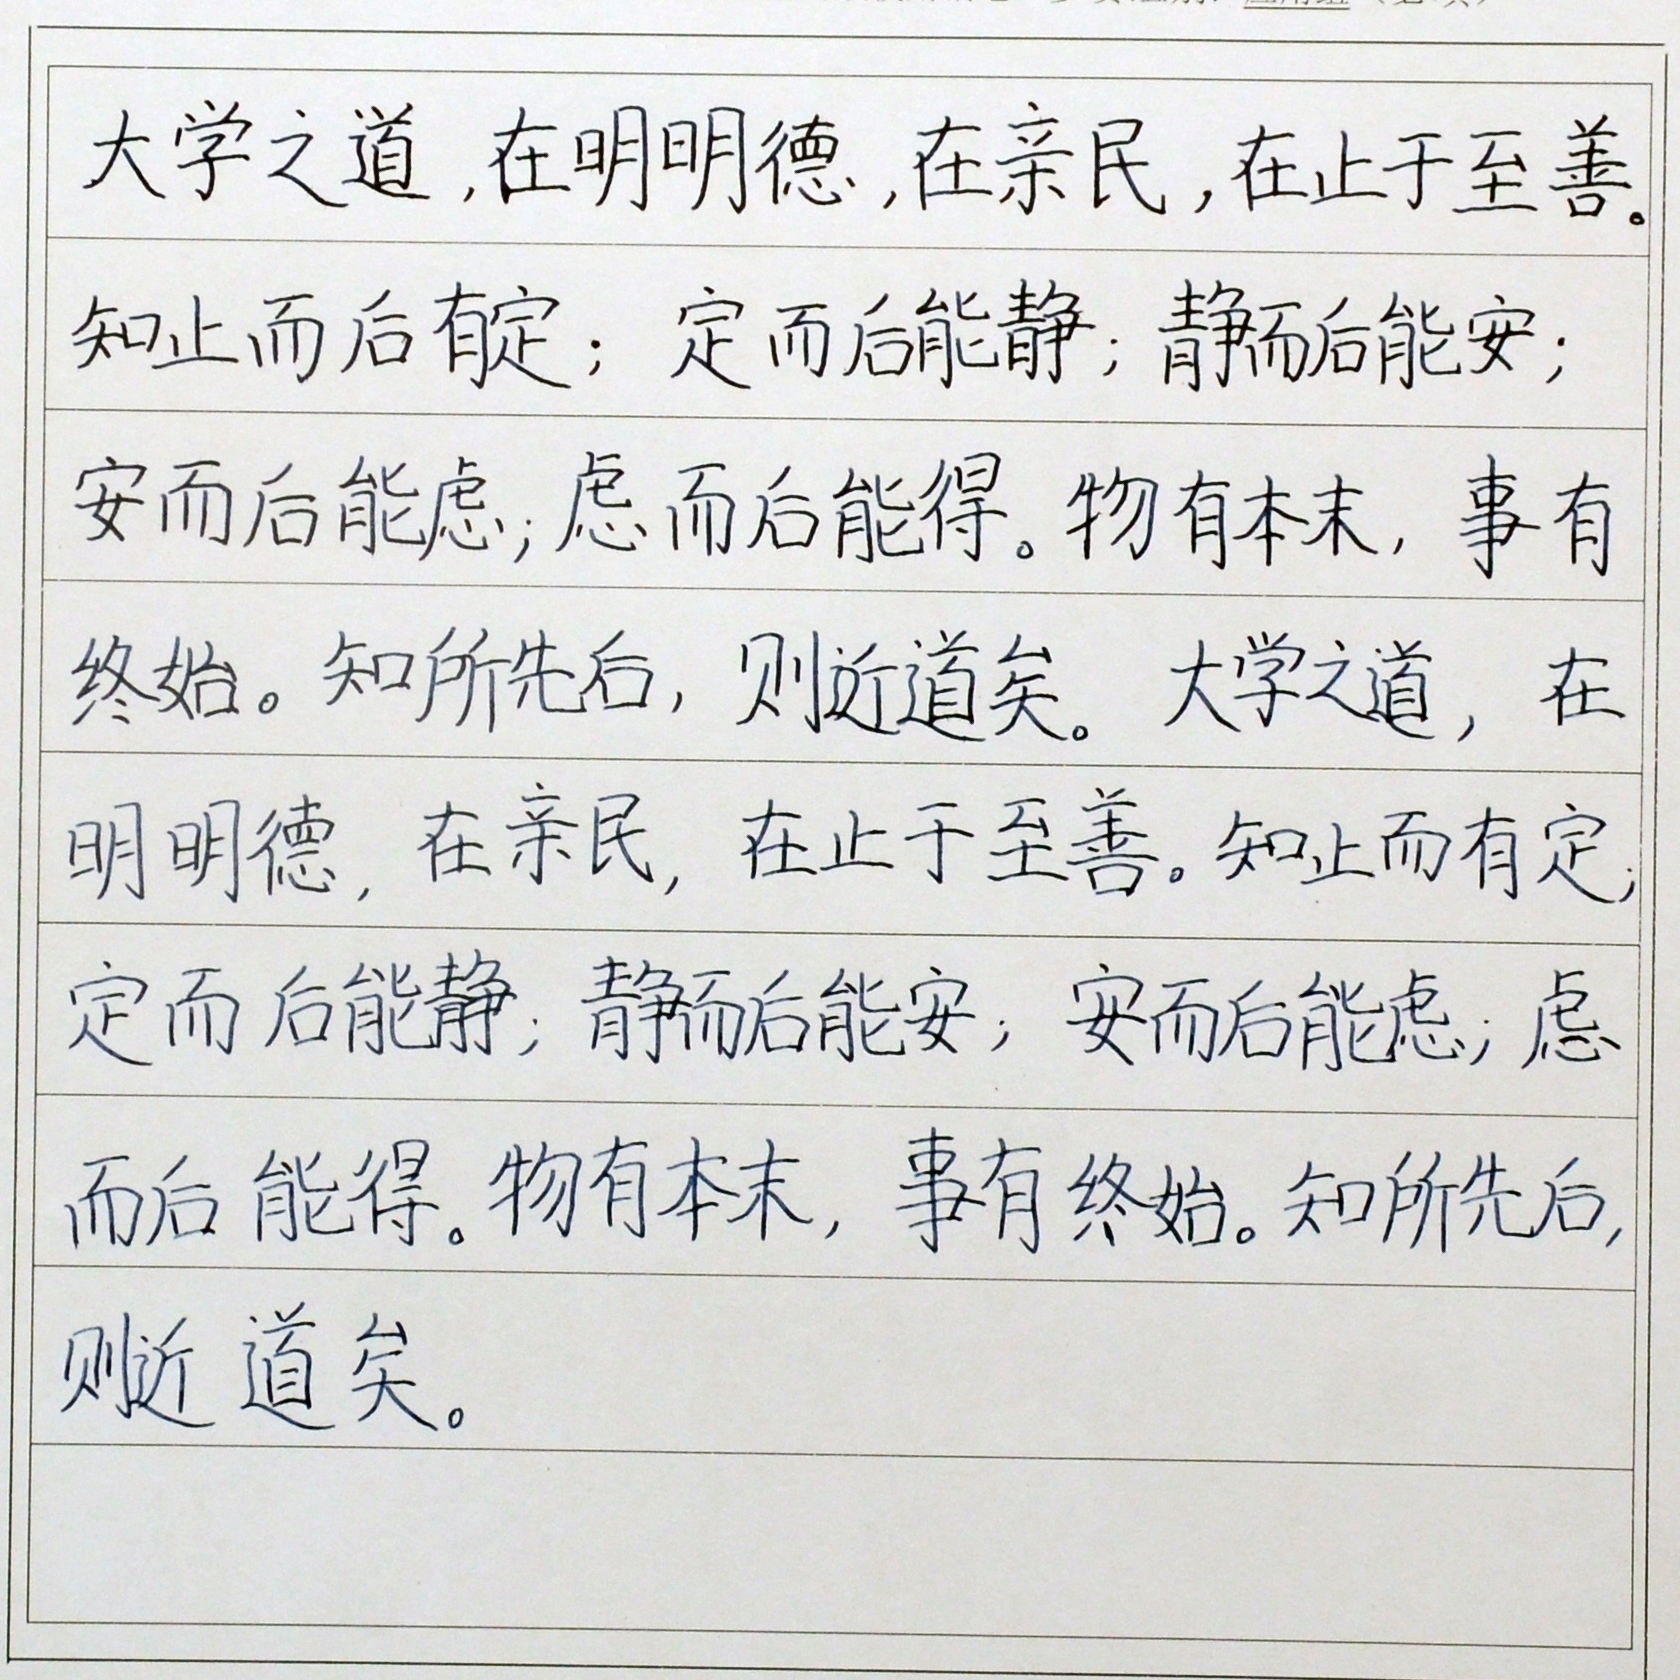 大学之道,在明明德,在亲民,在止于至善。
知止而后有定；定而后能静；静而后能安；
安而后能虑；虑而后能得。物有本末，事有
终始。知所先后，则近道矣。大学之道，在
明明德，在亲民，在止于至善。知止而有定；
定而后能静；静而后能安；安而后能虑；虑
而后能得。物有本末，事有终始。知所先后，
则近道矣。